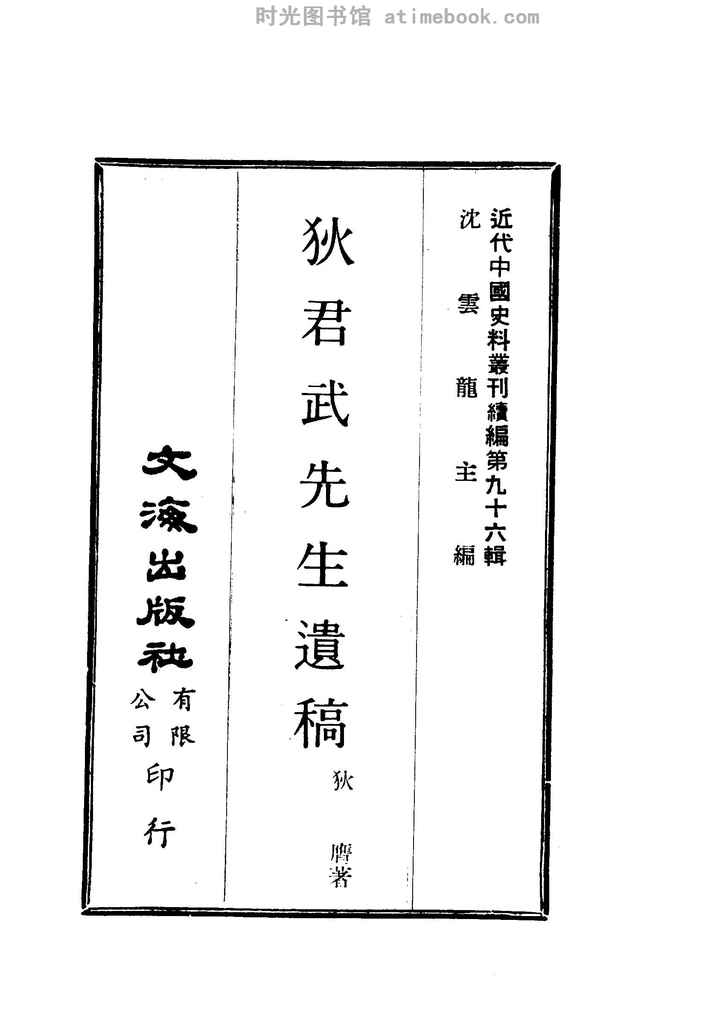 时光图书馆 atimebook.com
近代中國史料叢刊續編第九十六輯
沈雲龍主編
狄君武先生遺稿
狄膺著
文海出版社
有限
公司
印行